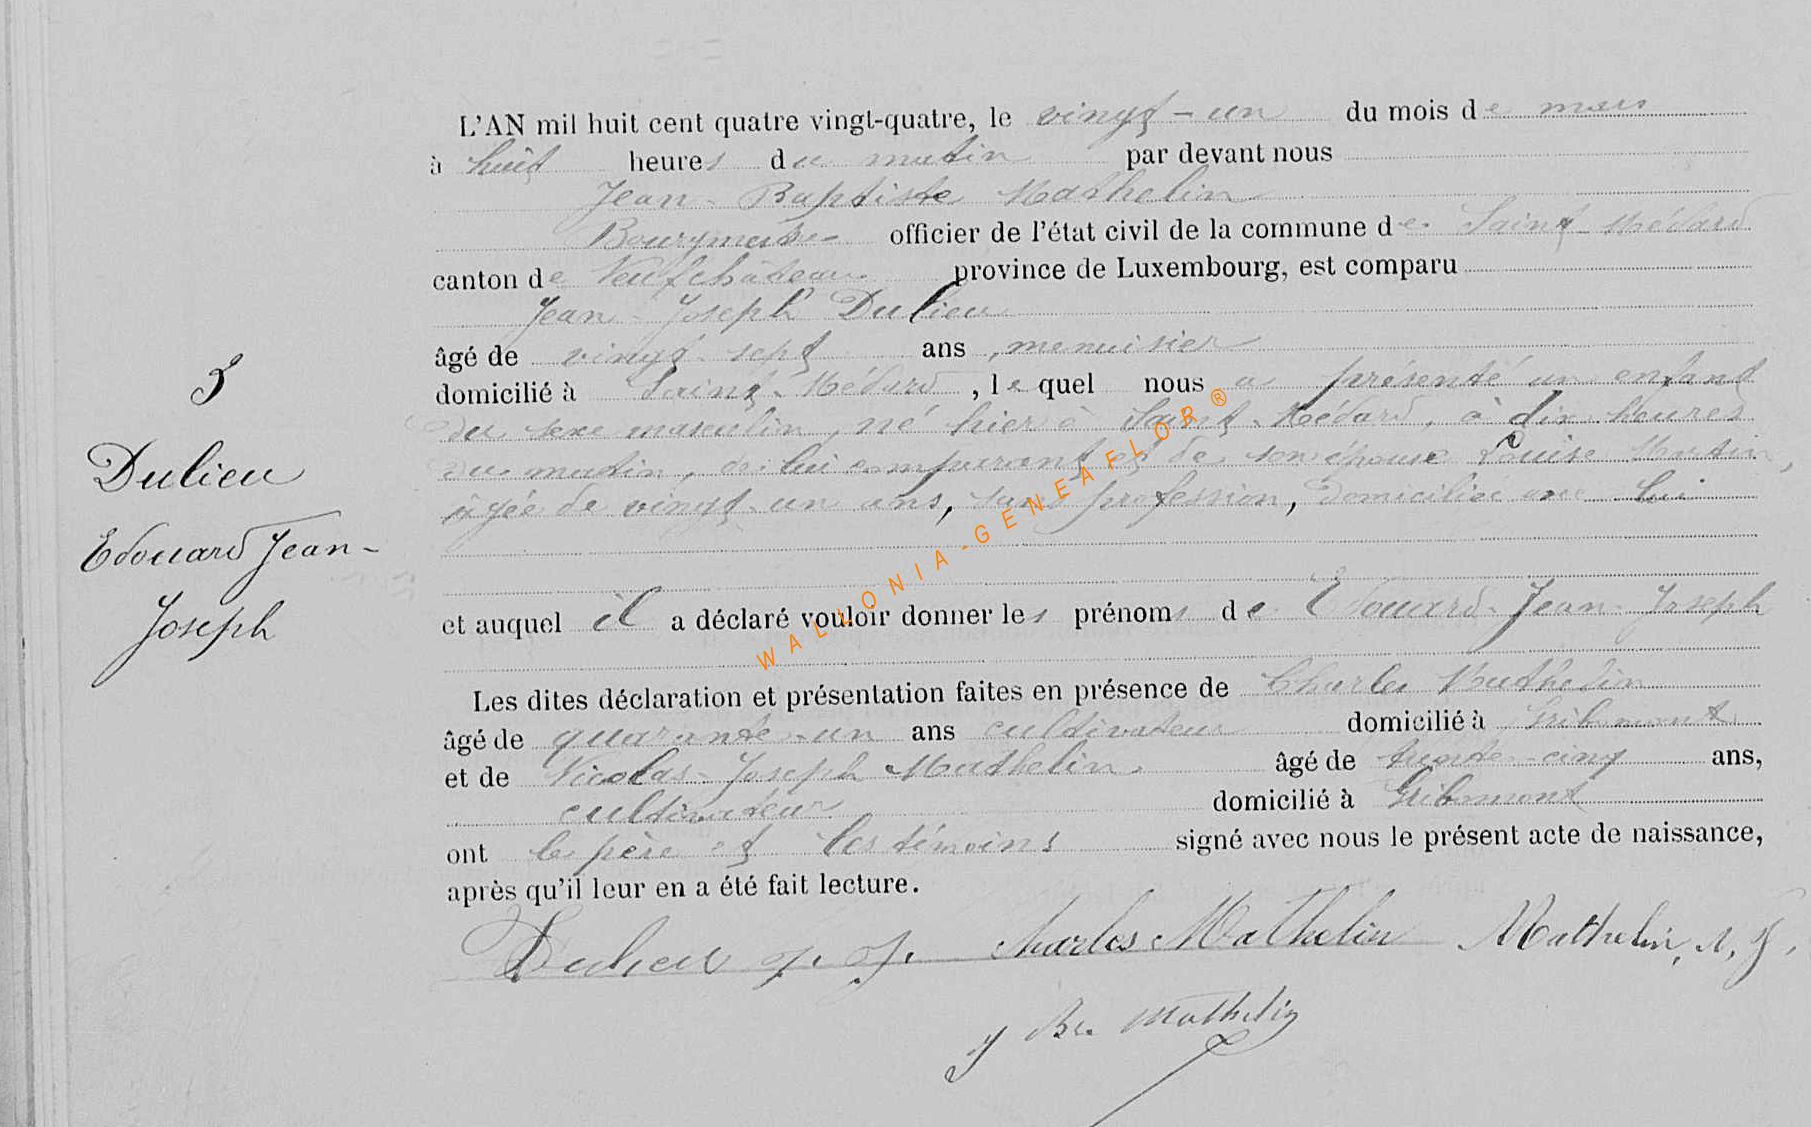 L'AN mil huit cent quatre vingt-quatre, le vingt-un du mois de mars
à huit heures du matin par devant nous
Jean-Baptiste Mathelin
Bourgmestre officier de l'état civil de la commune de Saint-Médard
canton de Neufchâteau province de Luxembourg, est comparu
Jean-Joseph Dulieu
âgé de vingt-sept ans, menuisier
domicilié à Saint-Médard, lequel nous a présenté un enfant
du sexe masculin, né hier à Saint-Médard, à dix heures
du matin, de lui comparant et de son épouse Louise Martin,
âgée de vingt-un ans, sans profession, domiciliée avec lui
et auquel il a déclaré vouloir donner les prénoms de Edouard-Jean-Joseph
Les dites déclaration et présentation faites en présence de Charles Mathelin
âgé de quarante-un ans cultivateur domicilié à Gribomont
et de Nicolas-Joseph Mathelin âgé de trente-cinq ans,
cultivateur domicilié à Gribomont
ont le père et les témoins signé avec nous le présent acte de naissance,
après qu'il leur en a été fait lecture.
Dulieu J. J. Charles Mathelin Mathelin, N. J.
J Bte Mathelin
5
Dulieu
Edouard Jean-
Joseph
WALLONIA-GENEAFLOR®